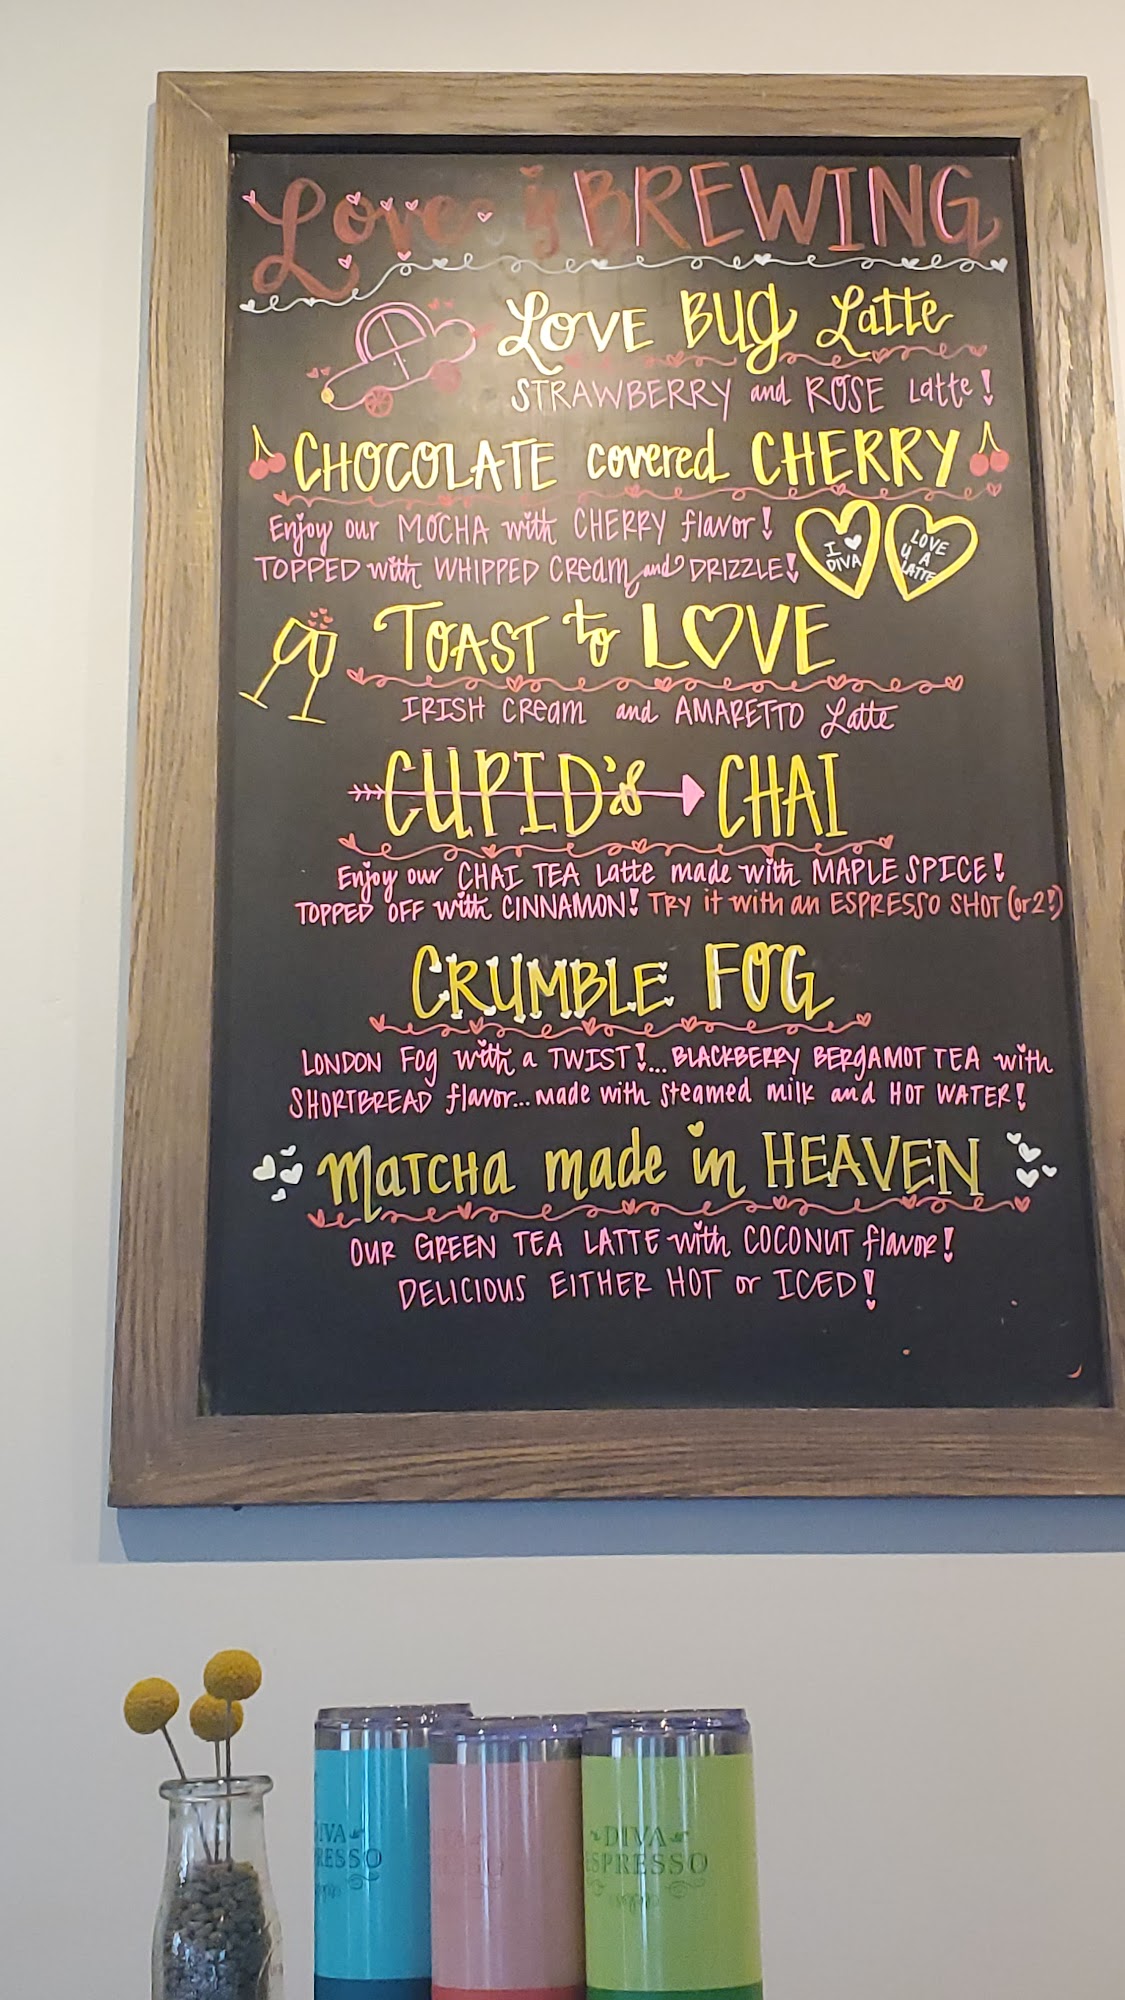 Love is BREWING
LOVE BUG Latte
STRAWBERRY and ROSE Latte!
CHOCOLATE covered CHERRY
Enjoy our MOCHA with CHERRY flavor!
TOPPED with WHIPPED CREAM and DRIZZLE!
I
DIVA
LOVE
U A
LATTE
TOAST to LOVE
IRISH CREAM and AMARETTO Latte
CUPID'S CHAI
Enjoy our CHAI TEA Latte made with MAPLE SPICE!
TOPPED OFF with CINNAMON! TRY it with an ESPRESSO SHOT (or 2!)
CRUMBLE FOG
LONDON FOG with a TWIST!... BLACKBERRY BERGAMOT TEA with
SHORTBREAD flavor... made with steamed milk and HOT WATER!
Matcha made in HEAVEN
OUR GREEN TEA LATTE with COCONUT flavor!
DELICIOUS EITHER HOT or ICED!
DIVA
ESPRESSO